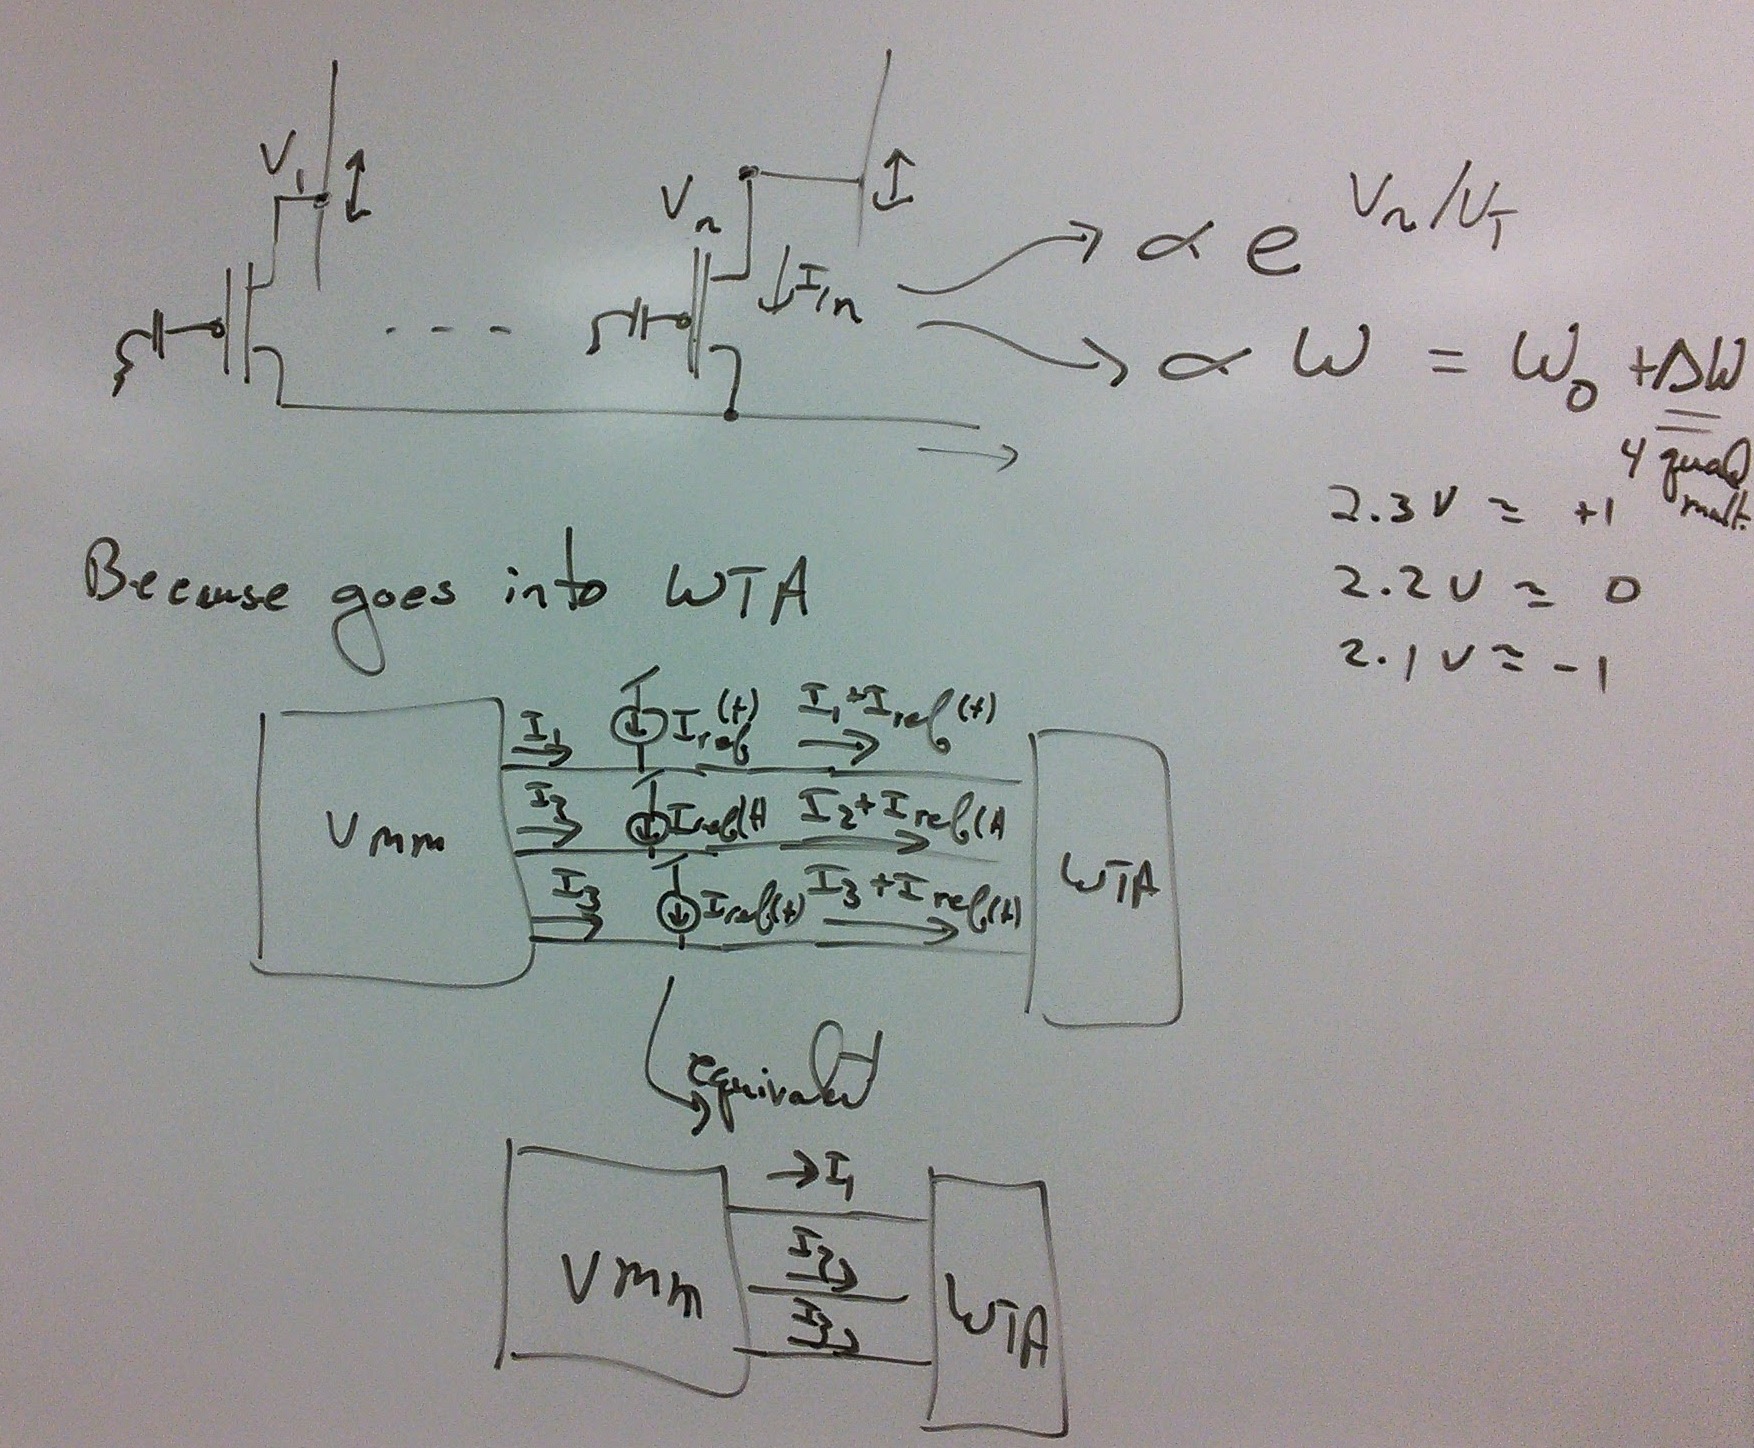 V1
Vn
I1n
∝ e^(Vn/UT)
∝ W = W0 + ΔW
4 quad
mult.
2.3 V ≈ +1
2.2 V ≈ 0
2.1 V ≈ -1
Because goes into WTA
I1 Iref(t) I1+Iref(t)
I2 Iref(t) I2+Iref(t)
VMM
WTA
I3 Iref(t) I3+Iref(t)
equivalent
→ I1
I2
VMM
I3
WTA